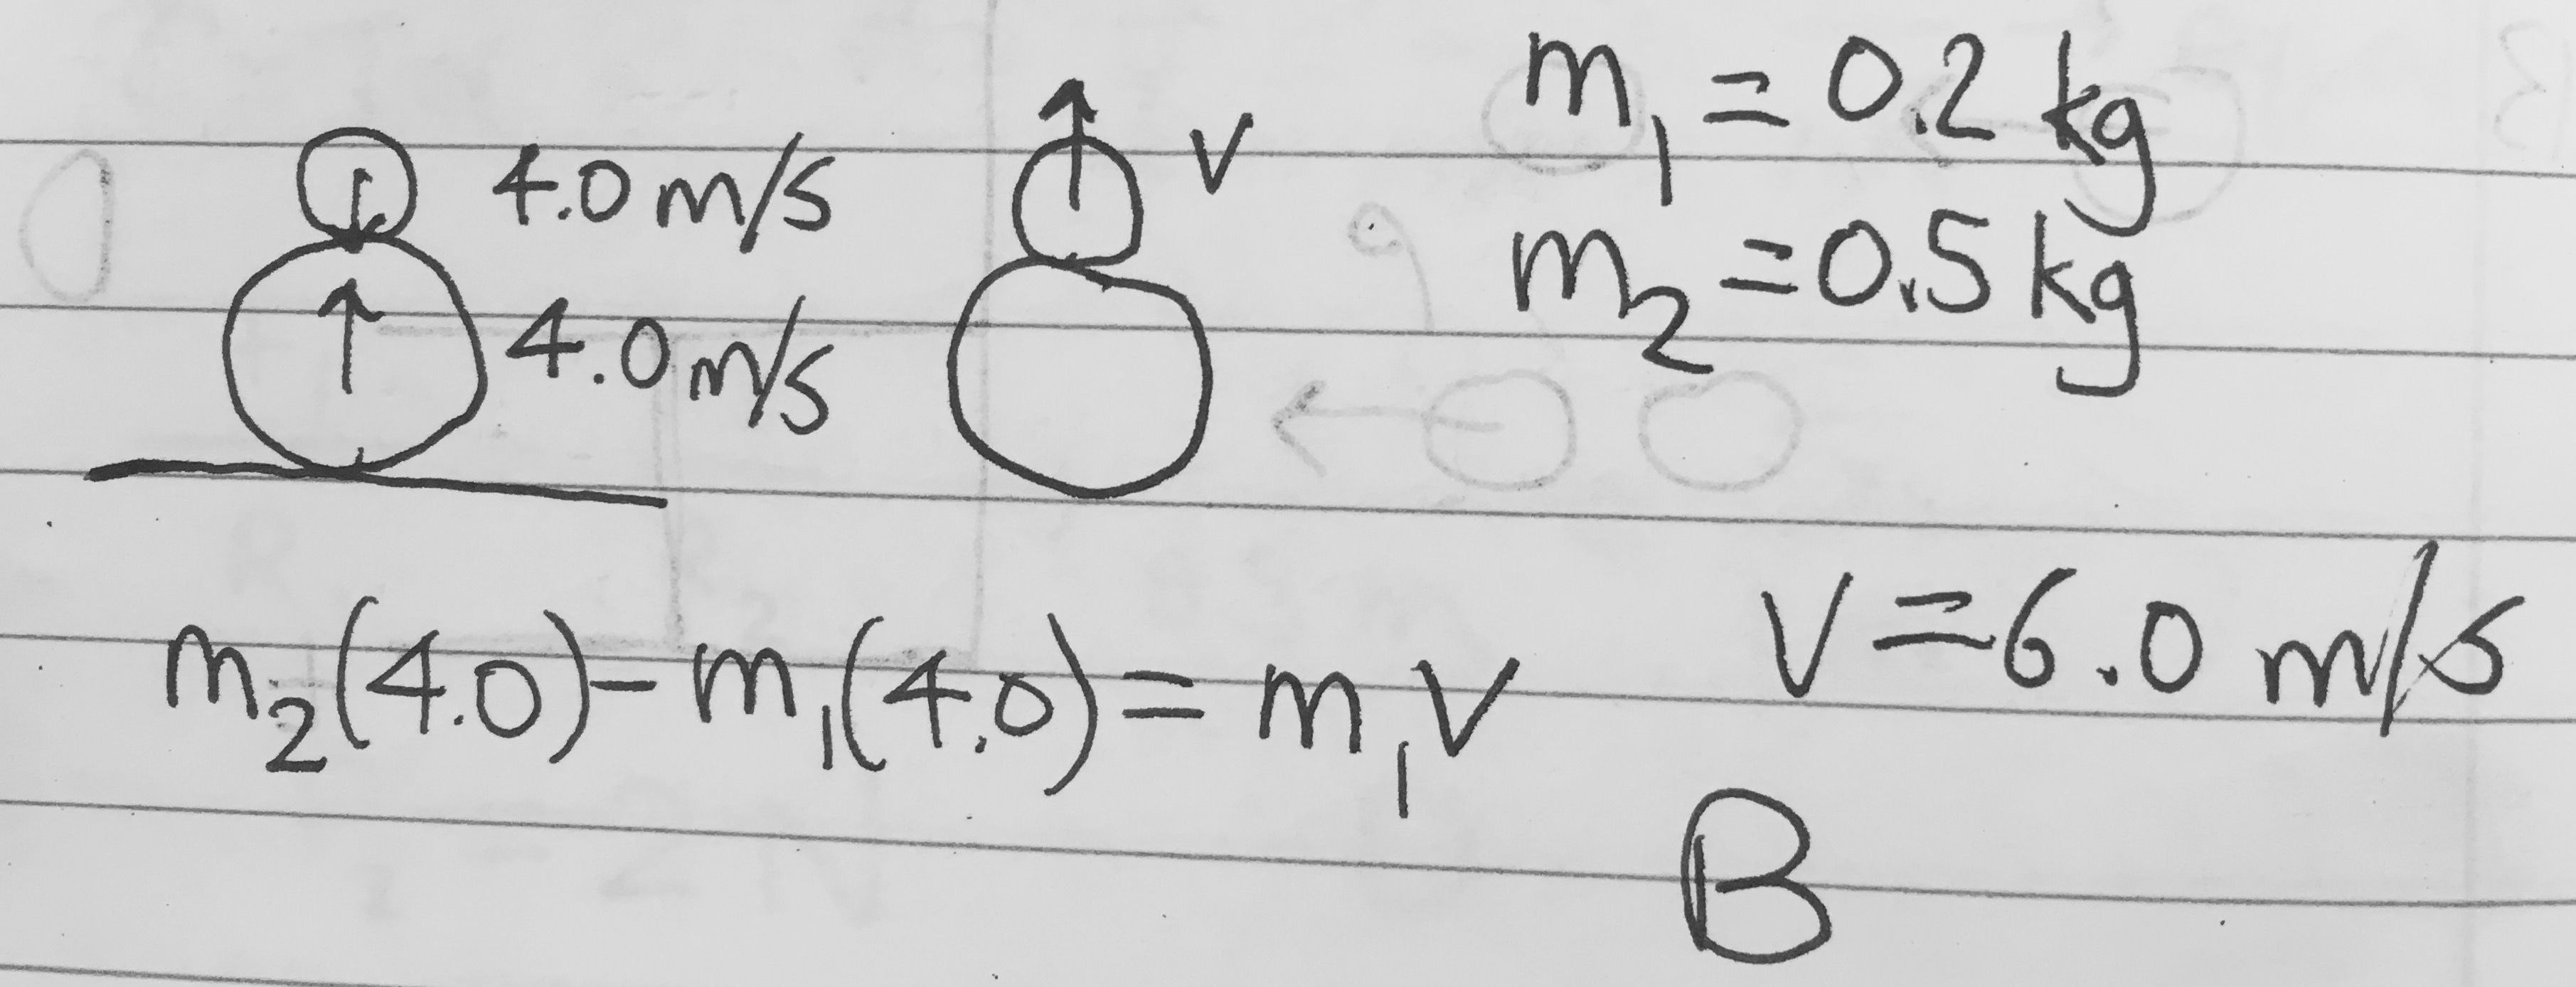 4.0 m/s
4.0 m/s
v
m₁ = 0.2 kg
m₂ = 0.5 kg
m₂(4.0) - m₁(4.0) = m₁v
v = 6.0 m/s
B